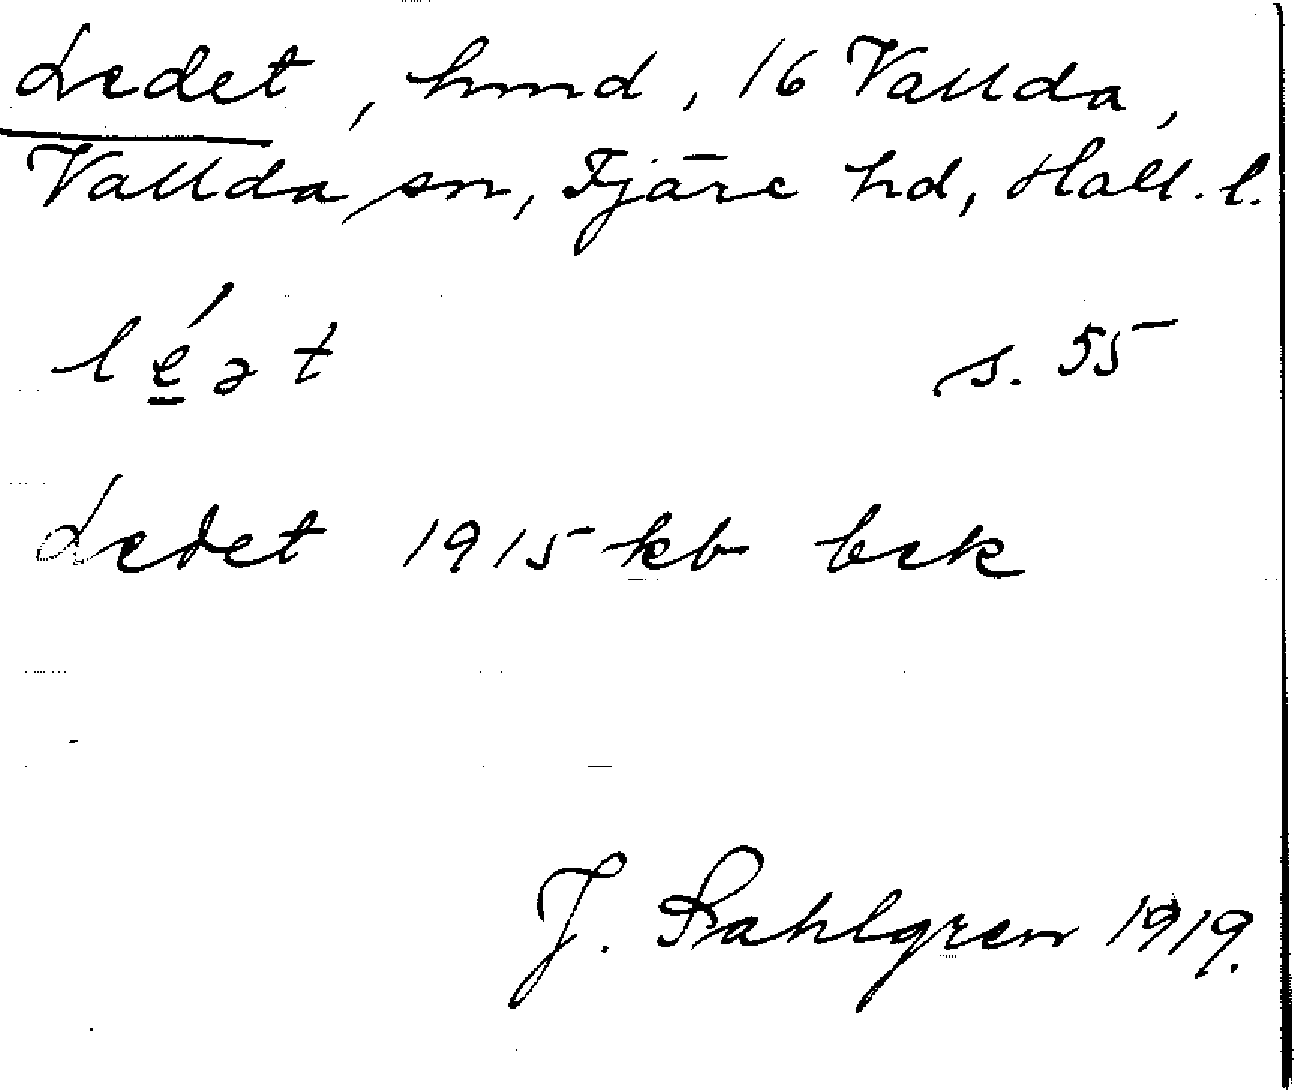 Ledet, hmd, 16 Vallda,
Vallda sn, Fjäre hd, Hall. l.
lé̱ət s. 55
Ledet 1915 kb bek
J. Sahlgren 1919.